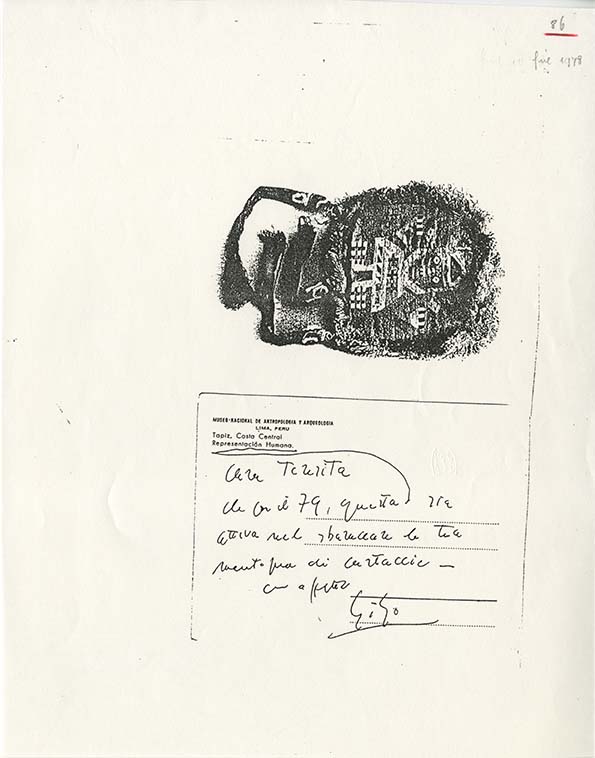 86
fine 1978
MUSEO NACIONAL DE ANTROPOLOGIA Y ARQUEOLOGIA
LIMA, PERU
Tapiz, Costa Central
Representación Humana.
Cara Teresita
79, questa sia
attiva nel sbaraccare la tua
montagna di cartaccie —
con affetto